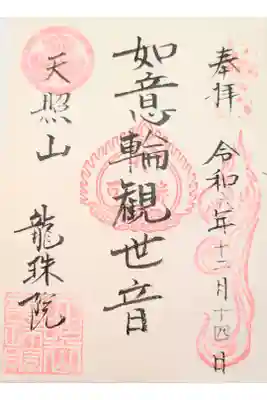 奉拝
令和六年十二月十四日
如意輪観世音
天照山
龍珠院